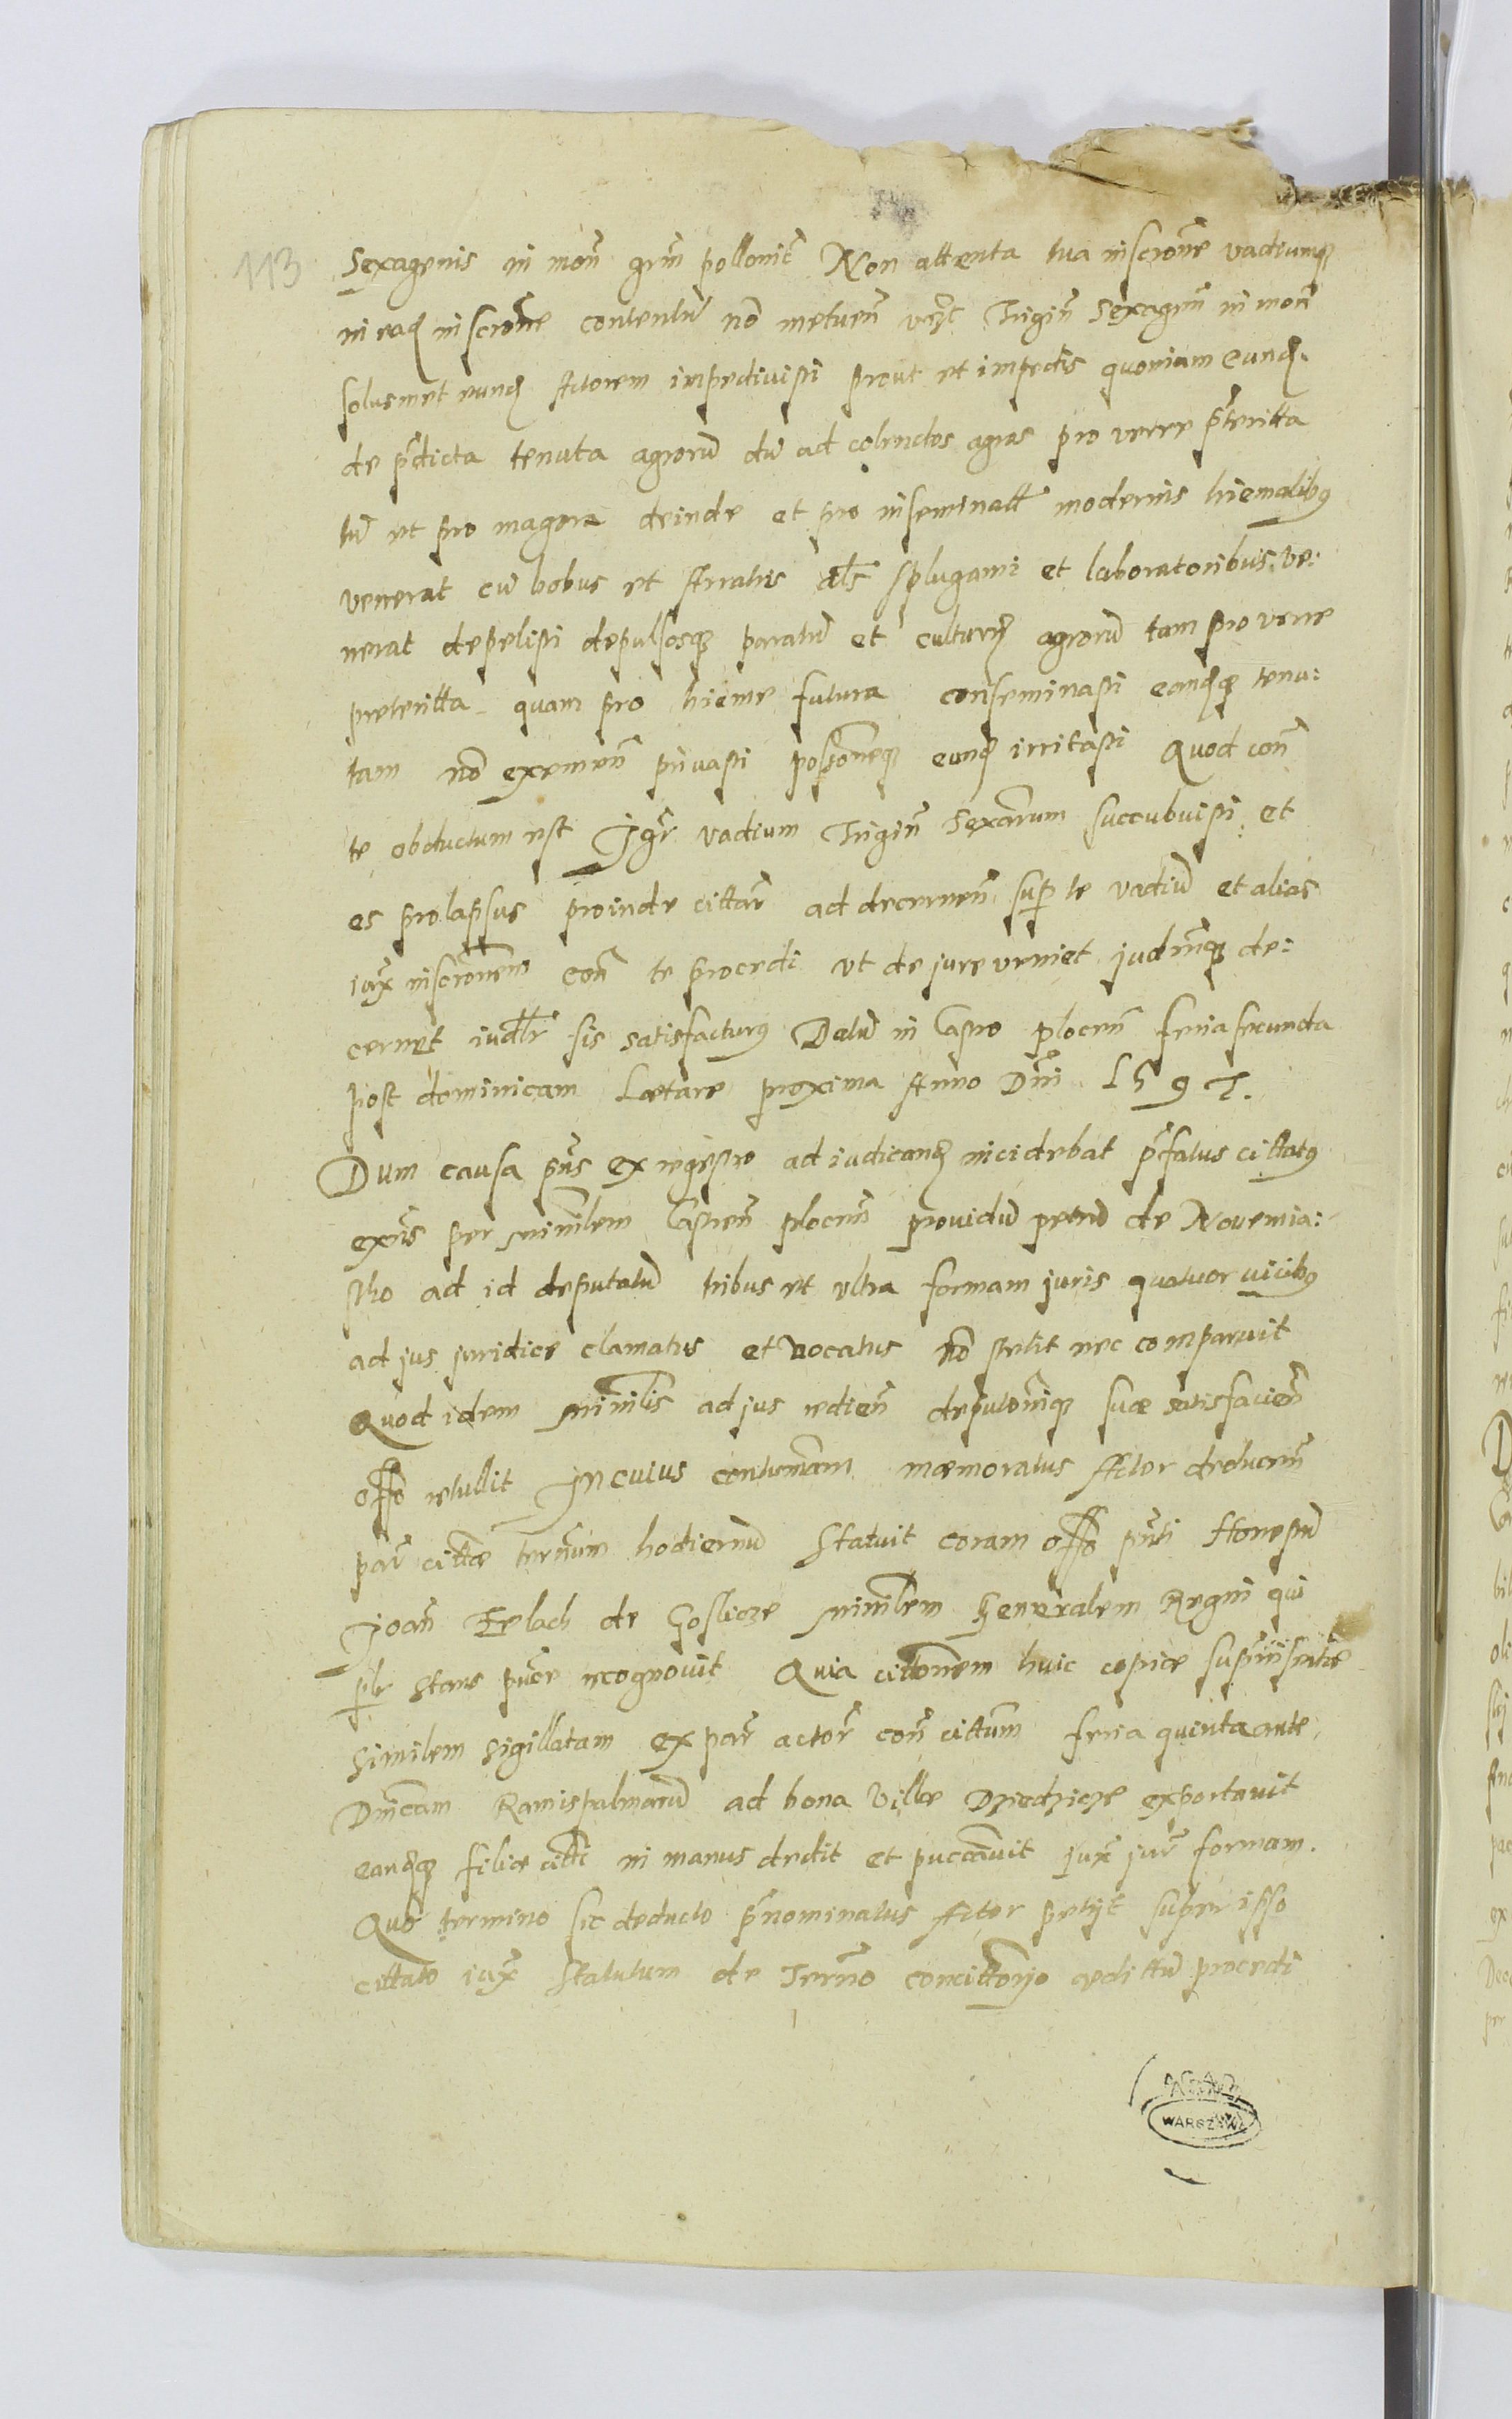 113
Sexagenis in mon grm pollonic Non attenta tua inscrone vadiumq
in ead inscrone contentu no metuen Trigin Sexagen in mon
solusmet eund Actorem impedivisti prout et impedis quoniam eund
de pdicta tenuta agroru du ad colendos agros pro verre pteritta
tu et pro magora deinde et pro inseminatt modernis hiemalibus
venerat cu bobus et Arratris als splugami et laboratoribus ve:
nerat depelisti depulsosq paratu et culturas agroru tam pro verre
preteritta quam pro hieme futura conseminasti eandq tenu:
tam no exemen privasti possioneq eund irritasti Quod con
te obductum est Igr vadium Trigin Sexarum succubuisti et
es prolapsus proinde cittar ad decernen sup te vadiu et alias
iux inscronem con te procedi ut de jure veniet judmq de:
cernet iudlr sis satisfacturus Datu in Castro plocen feria secunda
post dominicam Lætare proxima Anno Dni 1597.
Dum causa pns ex regestro ad iudicand incidebat pfatus cittatus
exns per minrlem Castren plocen providu petru de Novemia:
sto ad id deputatu tribus et ultra formam juris quatuor vicibus
ad jus juridice clamatus et vocatus no stetit nec comparuit
Quod idem minrlis ad jus redien deputoniq suæ satisfacien
offo retullit In cuius contumam mæmoratus Actor deducen
par cittæ termum hodiernu statuit coram offo pnti Honestu
Joan Zelach de Goslicze minrlem Generalem Regni qui
plr stans pure recognovit Quia cittonem huic copiæ suprinsertæ
similem sigillatam ex par actor con cittum feria quinta ante
Dnicam Ramispalmaru ad bona Villæ Dziedzicze exportavit
eandq filiæ citti in manus dedit et puccavit jux jur formam.
Quo termino sic deducto pnominatus Actor petyt super ipso
cittato iux statutum de Termo concittorio æditu procedi
WARSZAWA